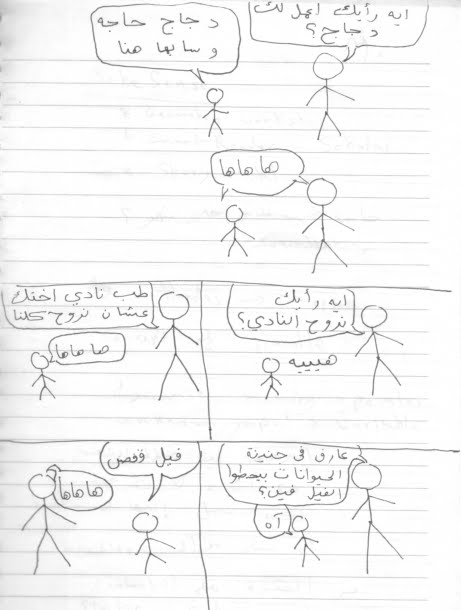 ايه رأيك اعمل لك
دجاج؟
دجاج حاجه
وسابها هنا
هاهاها
ايه رأيك
نروح النادي؟
هييييه
طب نادي اختك
عشان نروح كلنا
هاهاها
عارف في جنينة
الحيوانات بيحطوا
الفيل فين؟
آه
فيل قفص
هاهاها